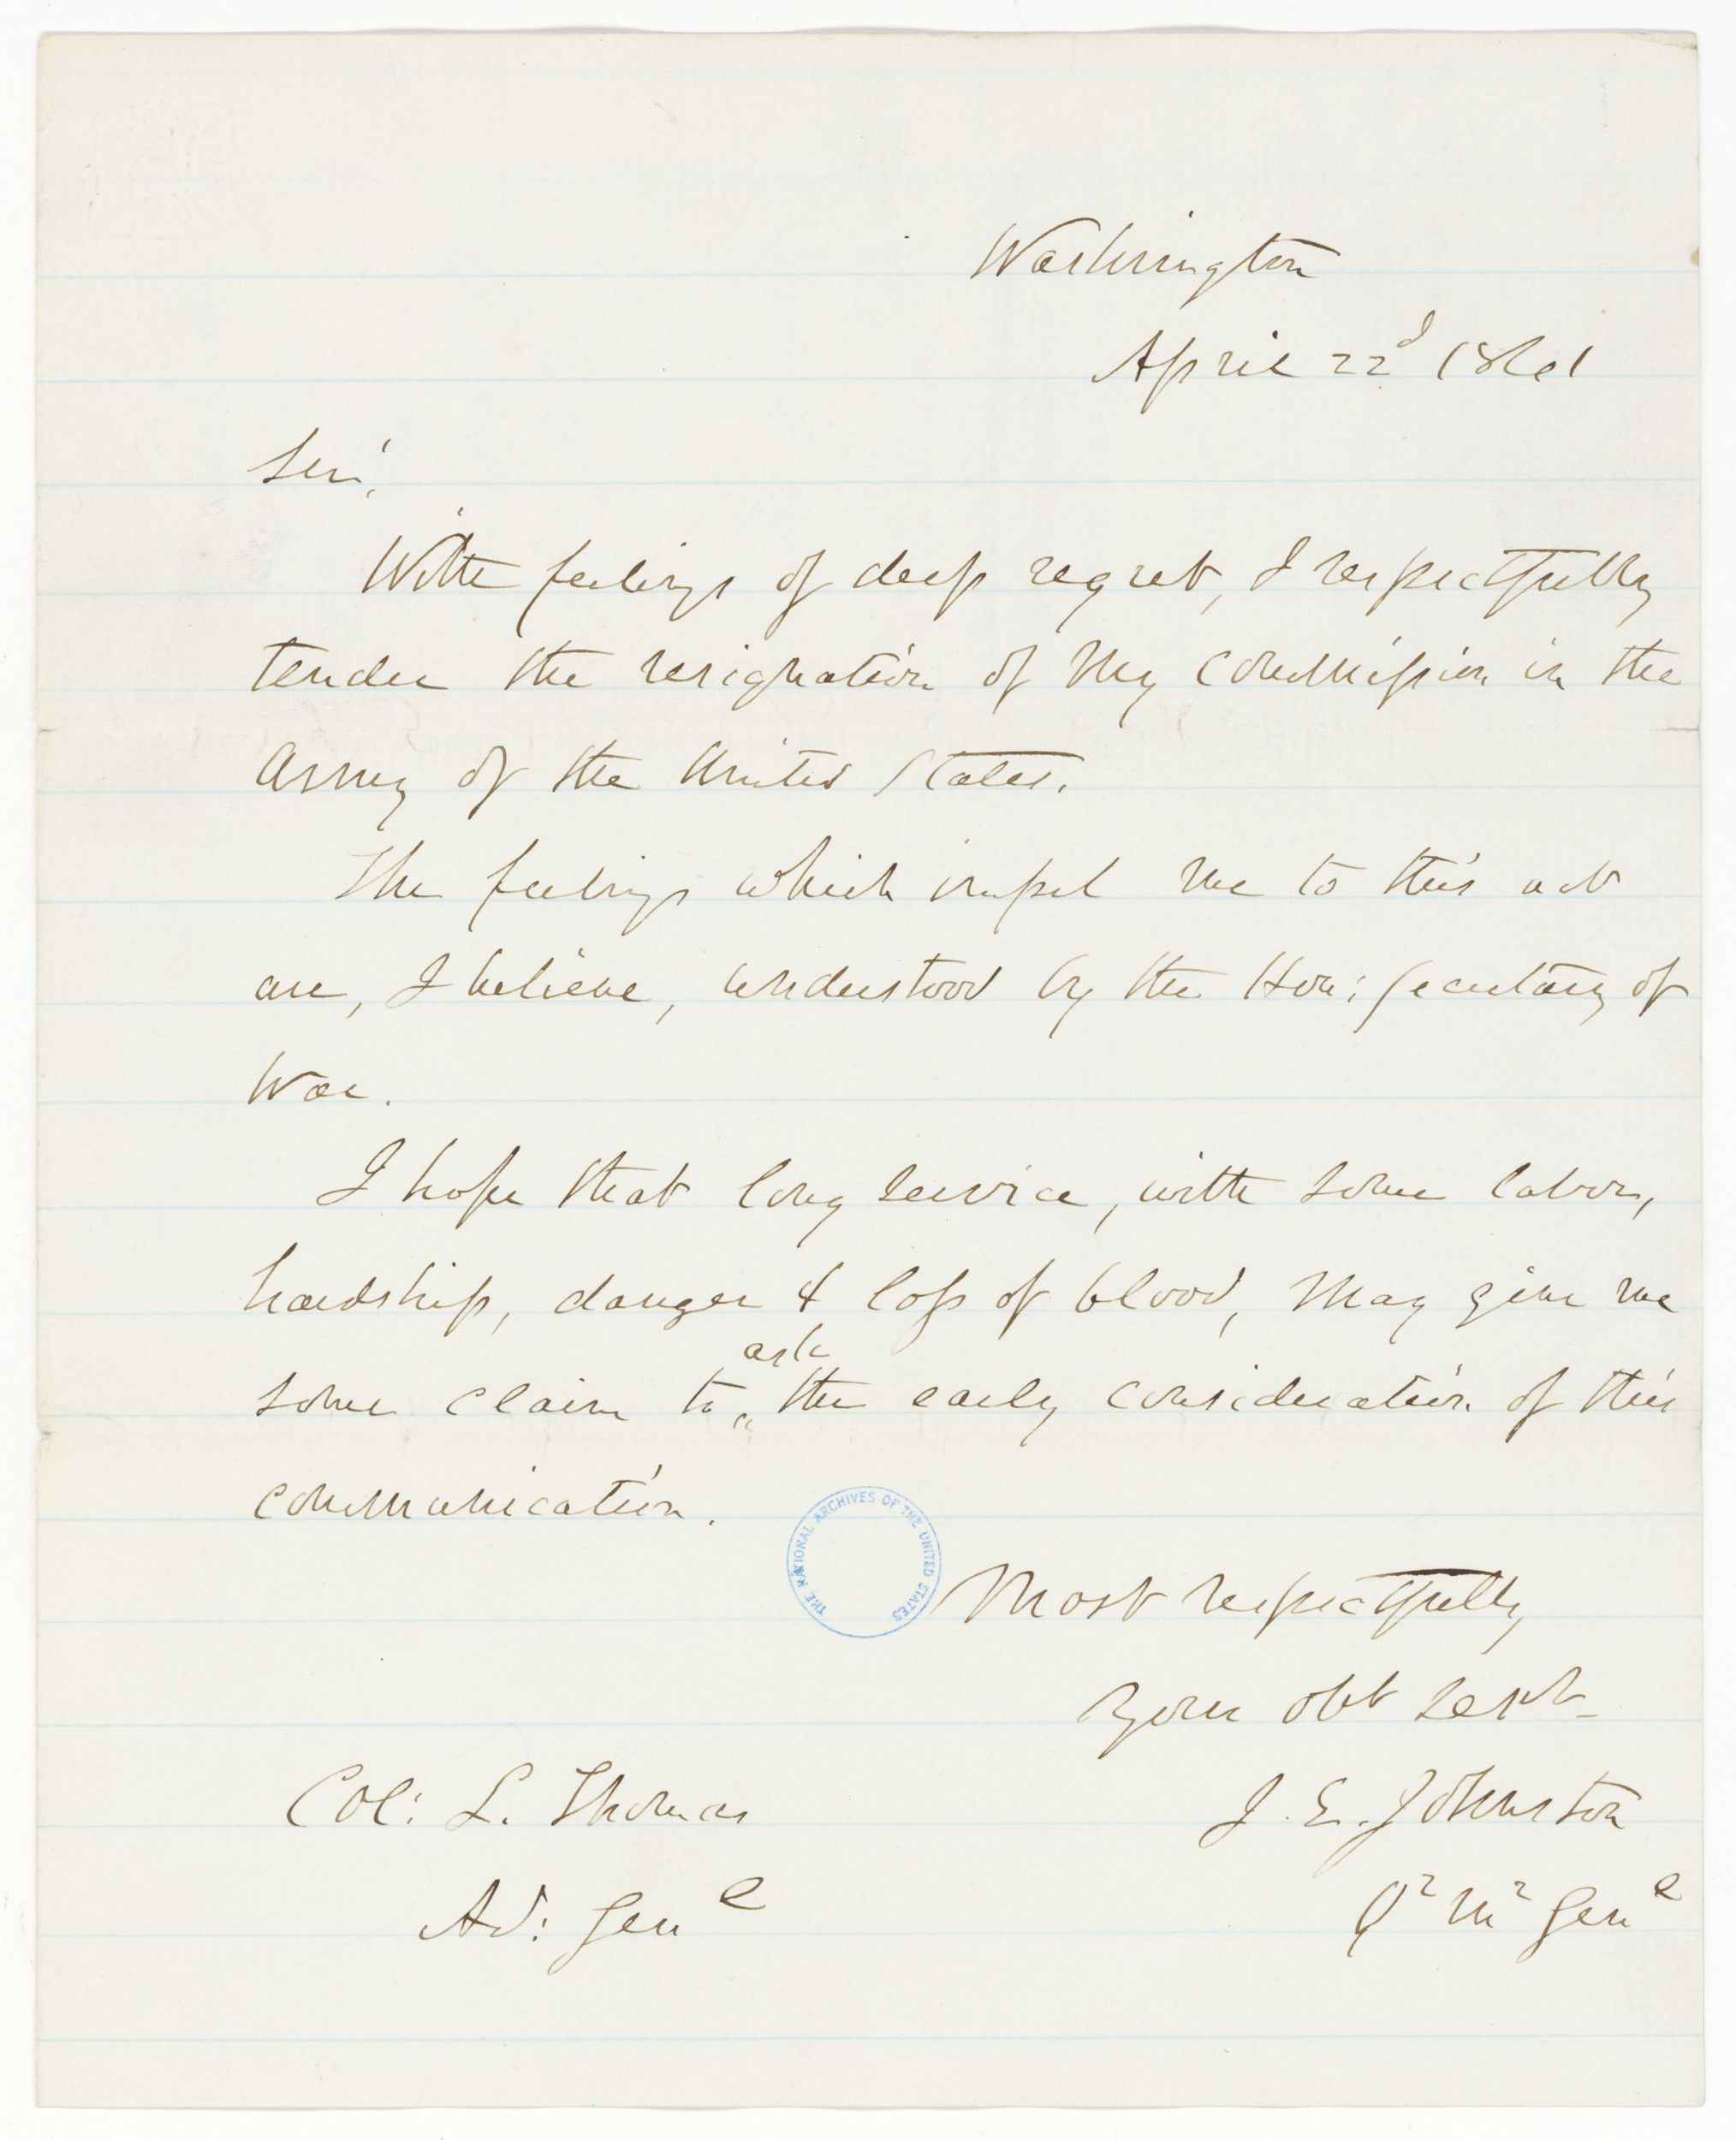 Washington
April 22d 1861
Sir,
With feelings of deep regret, I respectfully
tender the resignation of my commission in the
Army of the United States.
The feelings which impel me to this act
are, I believe, understood by the Hon: Secretary of
War.
I hope that long service, with some labor,
hardship, danger & loss of blood, may give me
ask
some claim to ^ the early consideration of this
communication.
THE NATIONAL ARCHIVES OF THE UNITED STATES
Most respectfully
Your obt servt
Col: L. Thomas
J. E. Johnston
Ad: Genl
Qr Mr Genl